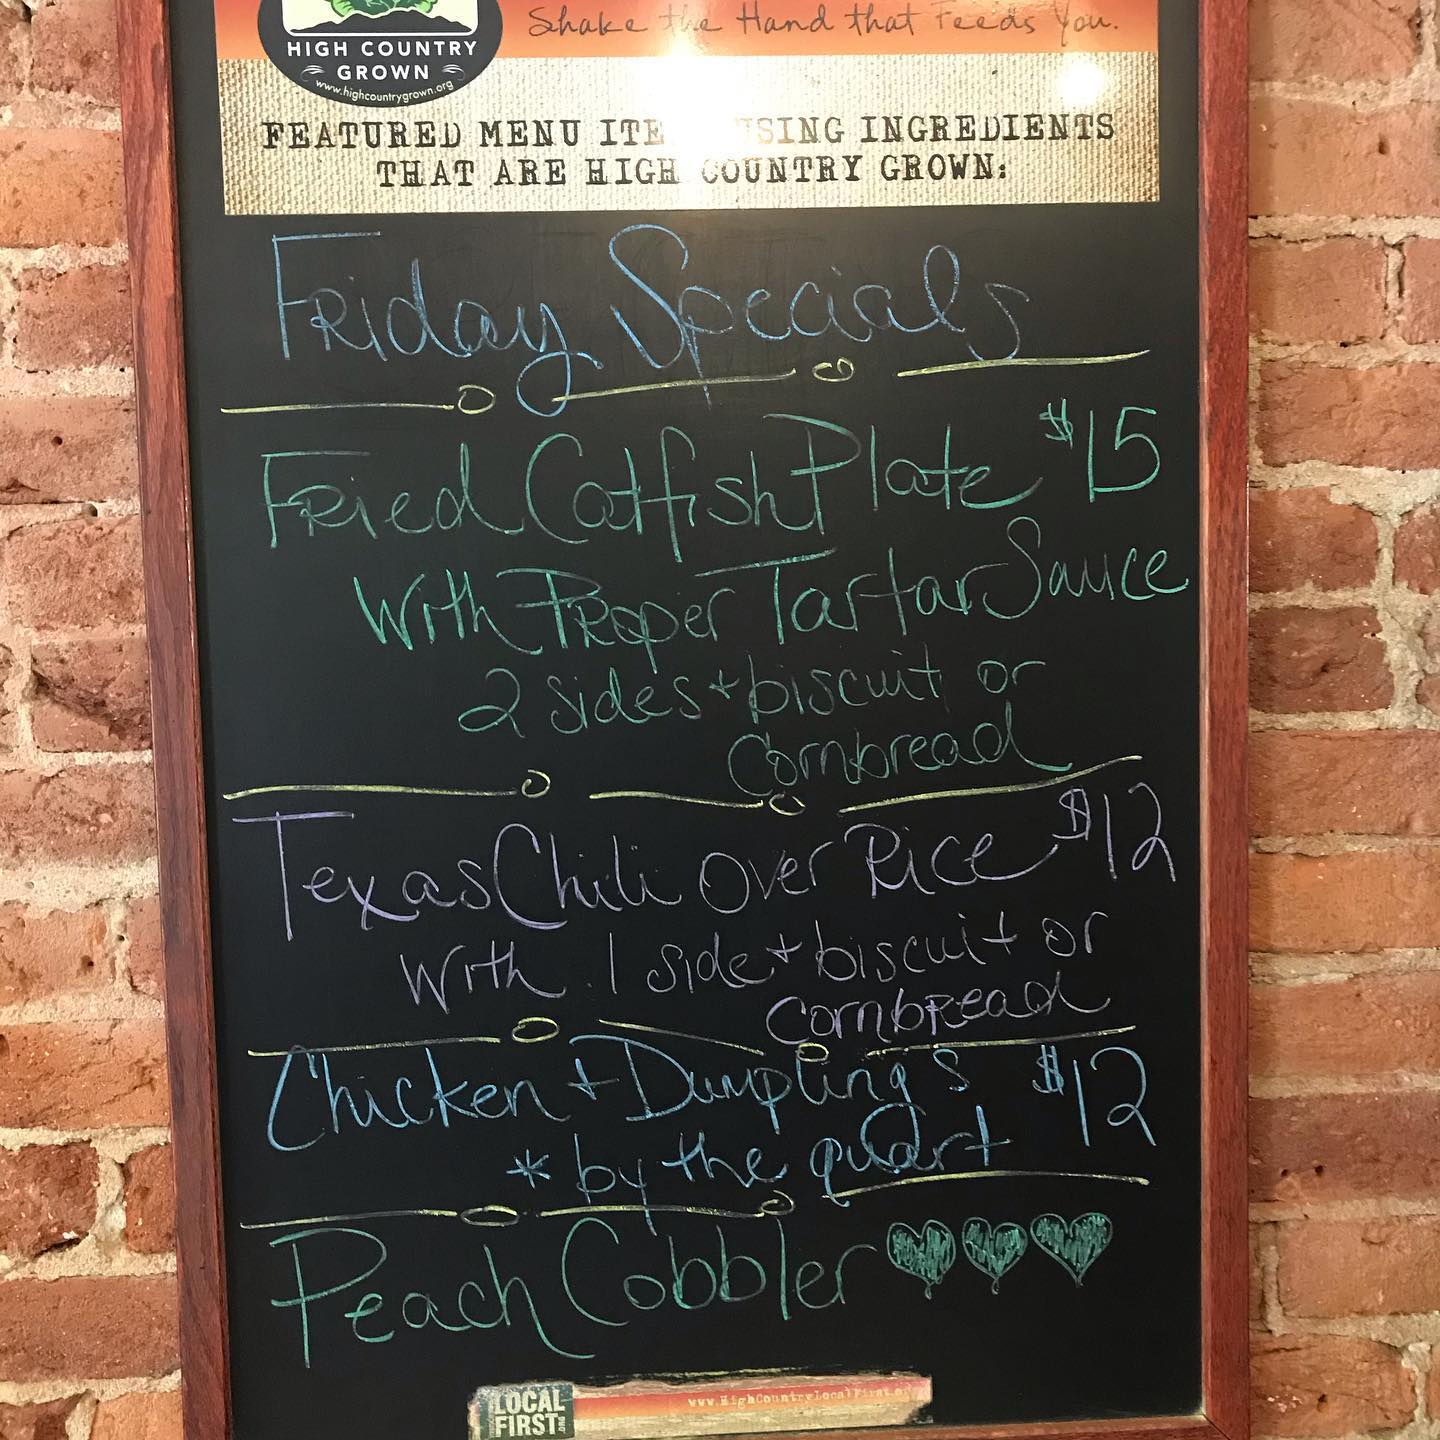 HIGH COUNTRY
GROWN
www.highcountrygrown.org
Shake the Hand that Feeds You.
FEATURED MENU ITE USING INGREDIENTS
THAT ARE HIGH COUNTRY GROWN:
Friday Specials
Fried Catfish Plate $15
With Proper Tartar Sauce
2 sides + biscuit or
Cornbread
Texas Chili Over Rice $12
With 1 side + biscuit or
cornbread
Chicken + Dumplings $12
* by the quart
Peach Cobbler
LOCAL
FIRST.ORG
www.HighCountryLocalFirst.org